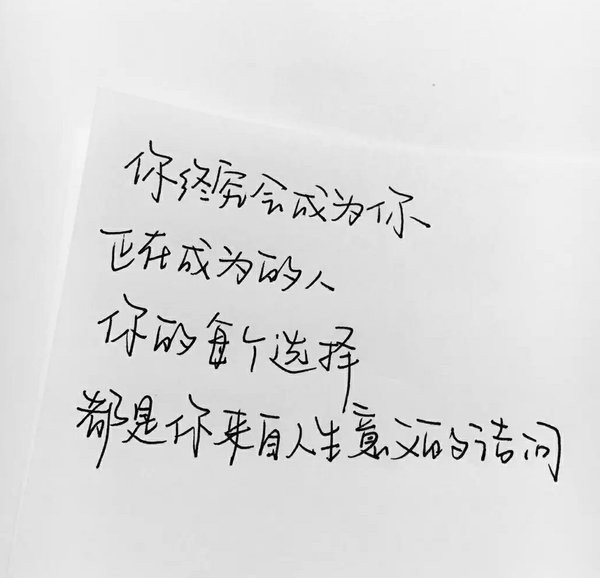 你终究会成为你
正在成为的人
你的每个选择
都是你来自人生意义的诘问